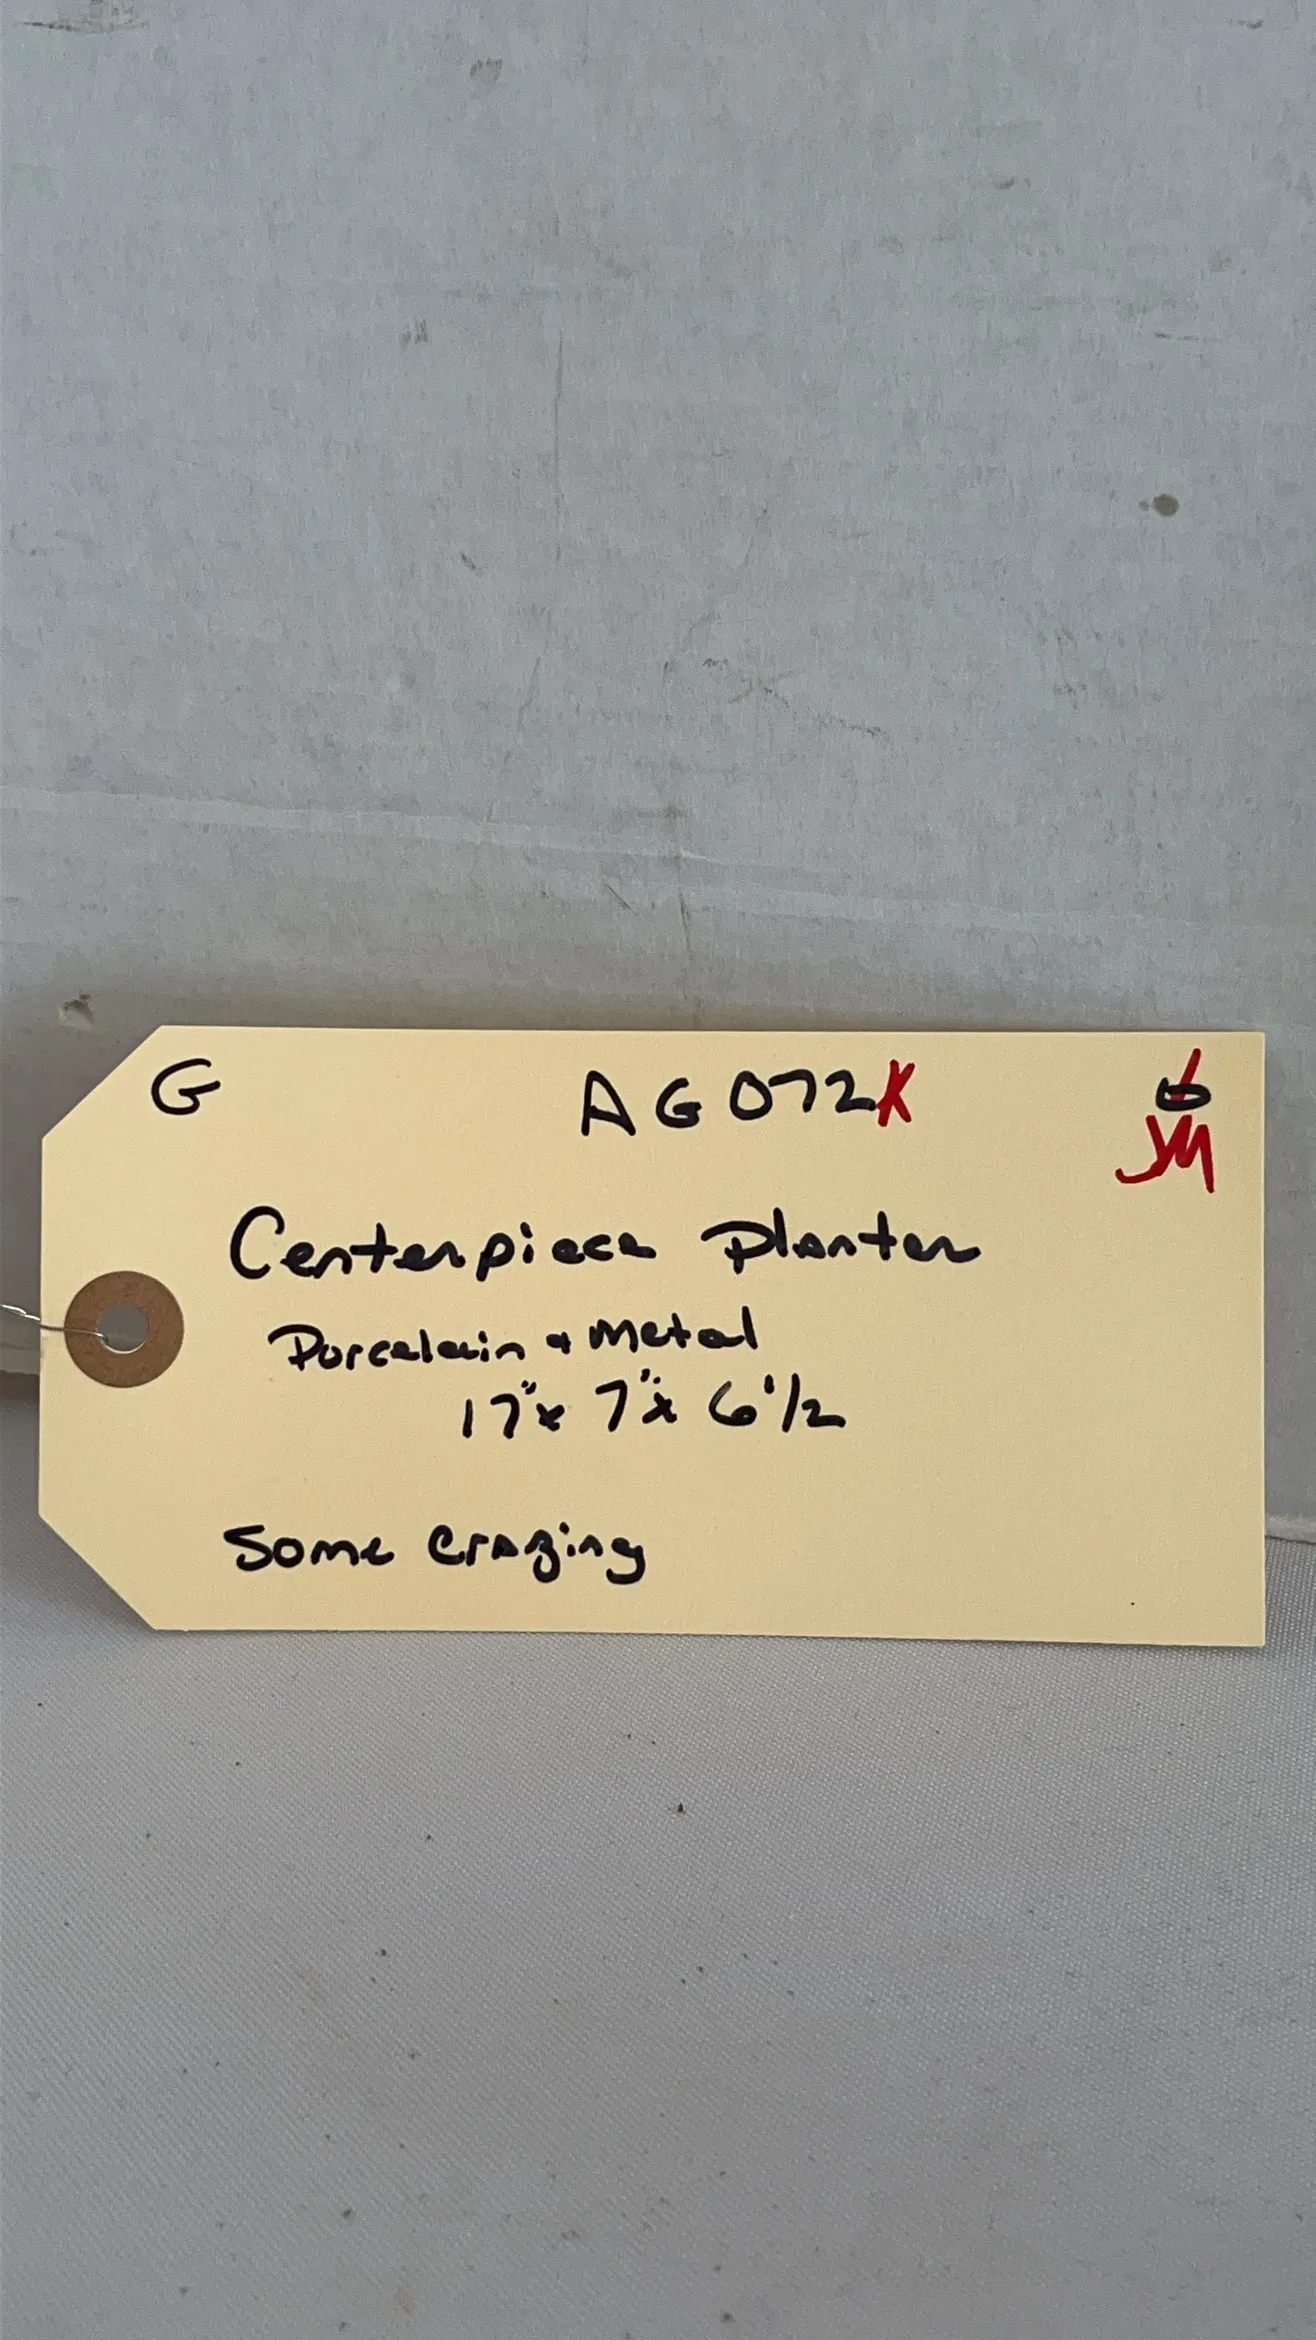 G AG072K
JM
Centerpiece Planter
Porcelain & Metal
17" x 7" x 6 1/2
Some Crazing